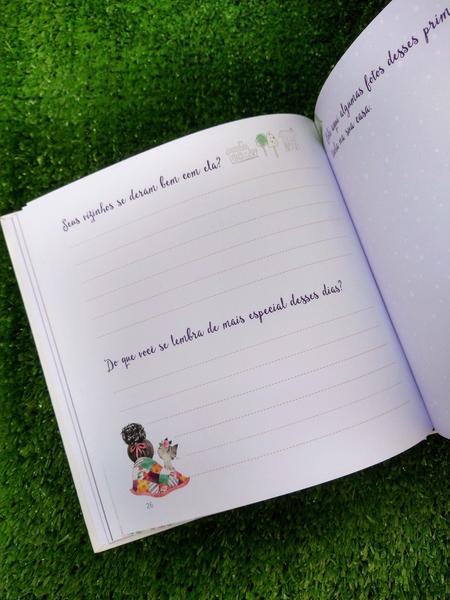 Seus vizinhos se deram bem com ela?
Do que você se lembra de mais especial desses dias?
26
algumas fotos desses
na sua casa.